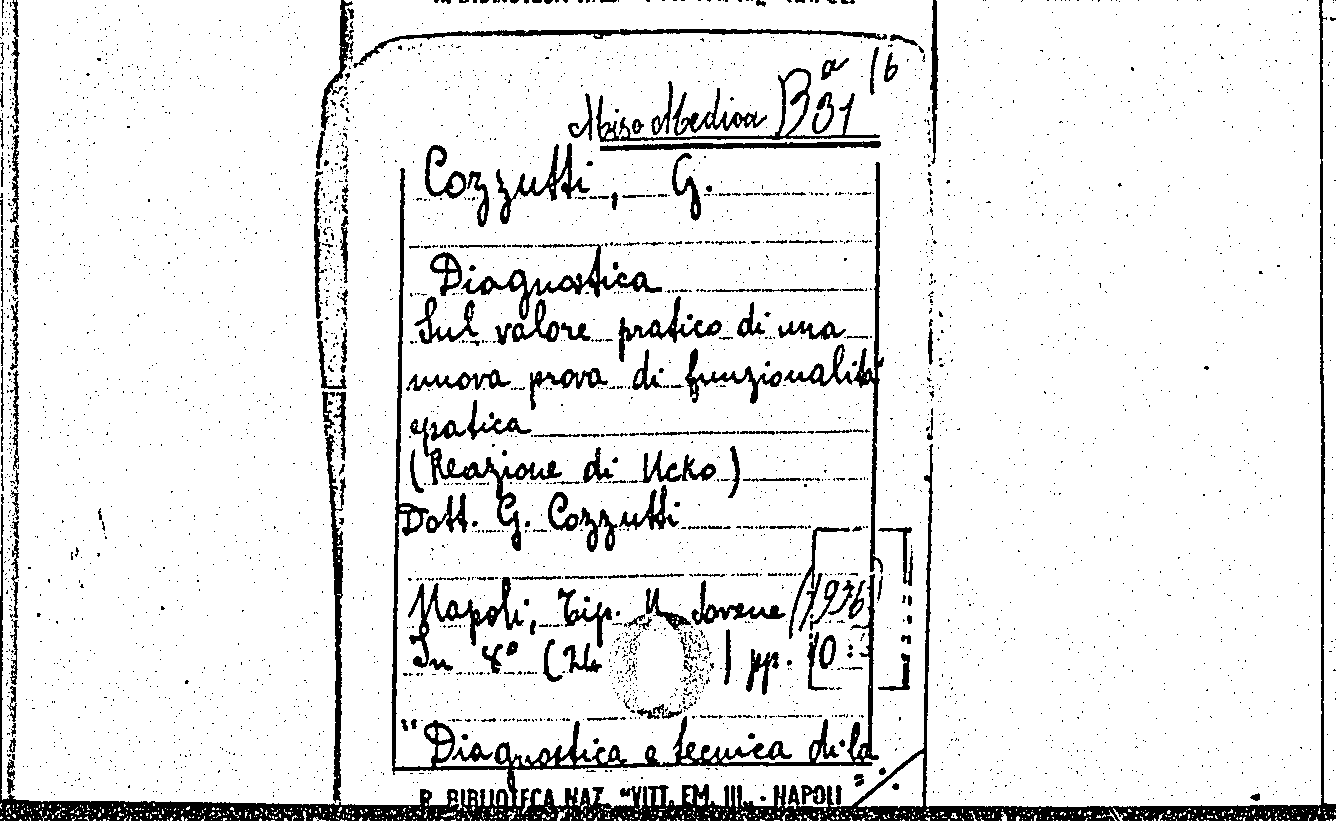 Misc Medica B a 31 (6
Cozzutti, G.
Diagnostica
Sul valore pratico di una
nuova prova di funzionalità
epatica
(Reazione di Ucko)
Dott. G. Cozzutti
Napoli, Tip. N. Jovene (1936)
In 8° (24 ) pp. 10
"Diagnostica e tecnica di la
R. BIBLIOTECA NAZ. "VITT. EM. III„ - NAPOLI